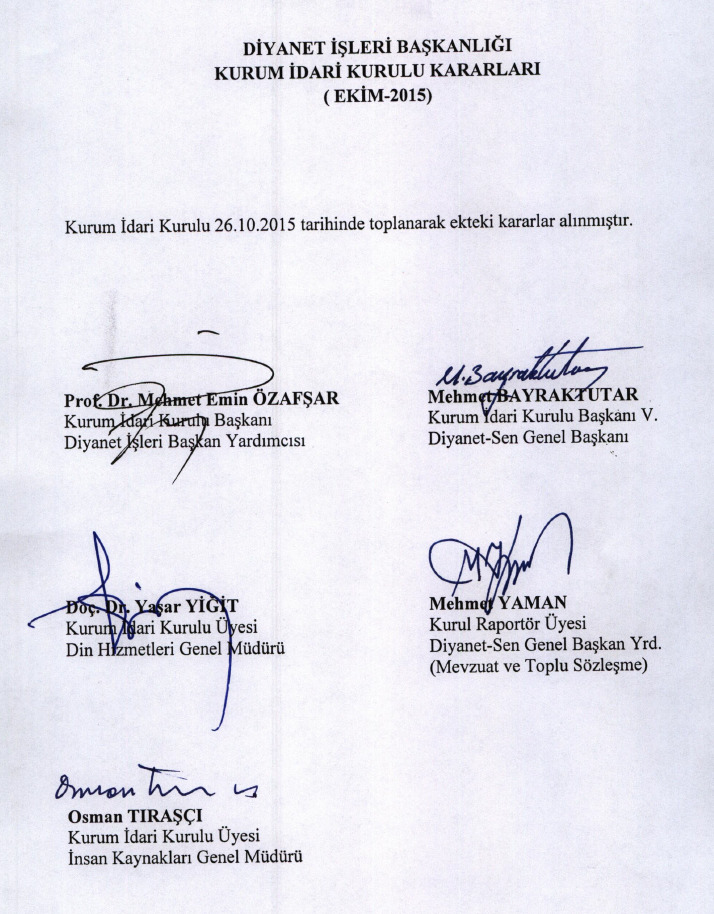 DİYANET İŞLERİ BAŞKANLIĞI
KURUM İDARİ KURULU KARARLARI
( EKİM-2015)
Kurum İdari Kurulu 26.10.2015 tarihinde toplanarak ekteki kararlar alınmıştır.
Prof. Dr. Mehmet Emin ÖZAFŞAR
Kurum İdari Kurulu Başkanı
Diyanet İşleri Başkan Yardımcısı
M. Bayraktutar
Mehmet BAYRAKTUTAR
Kurum İdari Kurulu Başkanı V.
Diyanet-Sen Genel Başkanı
Doç. Dr. Yaşar YİĞİT
Kurum İdari Kurulu Üyesi
Din Hizmetleri Genel Müdürü
Mehmet YAMAN
Kurul Raportör Üyesi
Diyanet-Sen Genel Başkan Yrd.
(Mevzuat ve Toplu Sözleşme)
Osman TIRAŞÇI
Kurum İdari Kurulu Üyesi
İnsan Kaynakları Genel Müdürü